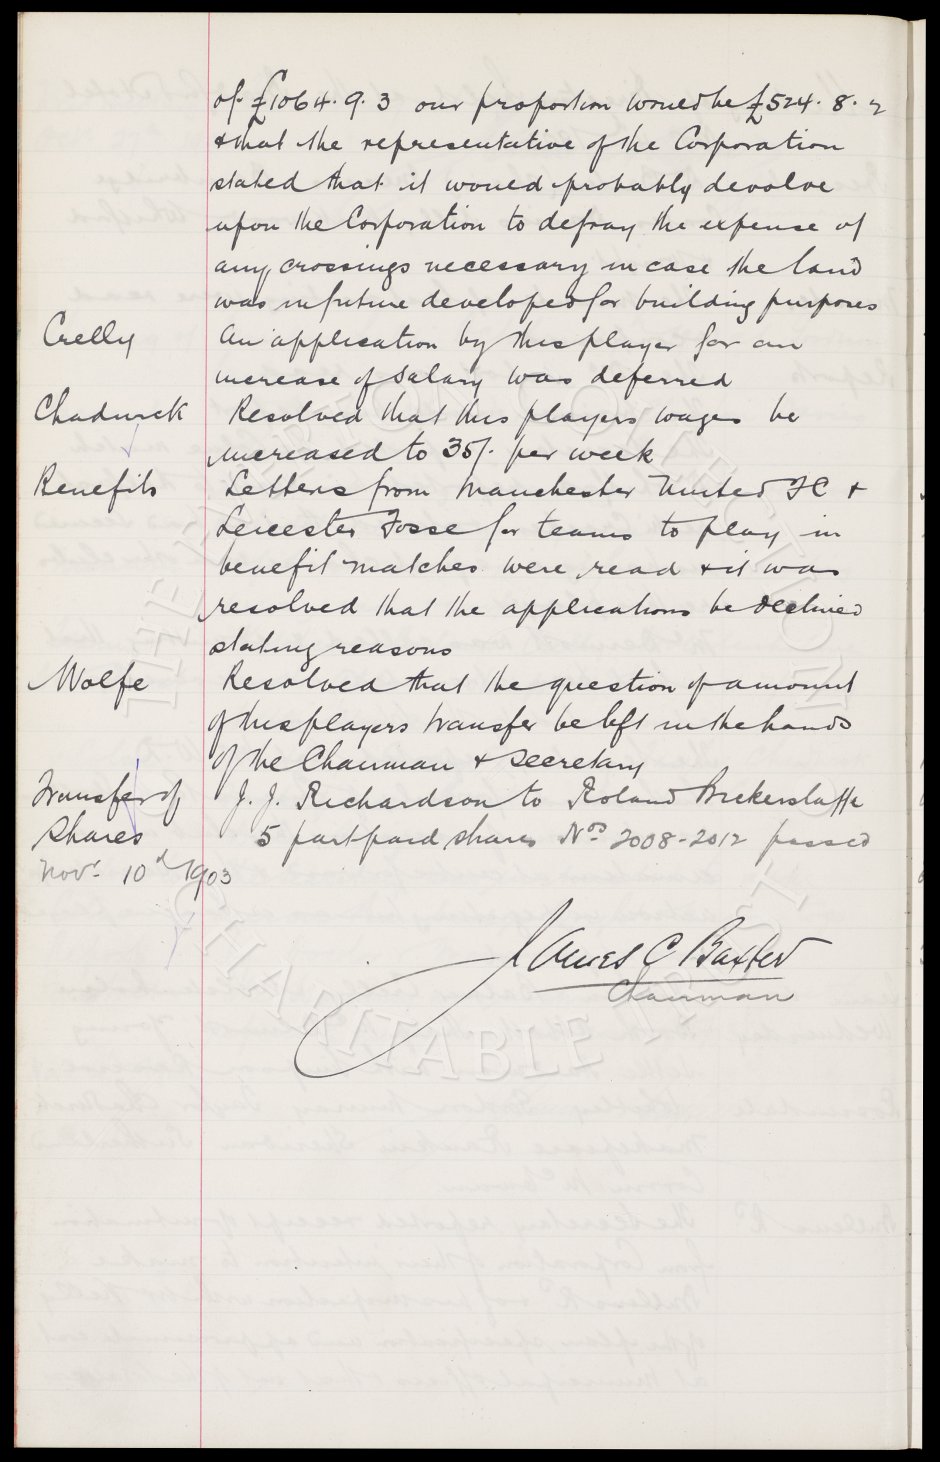 of £1064. 9. 3 our proportion would be £524. 8. 2
& that the representative of the Corporation
stated that it would probably devolve
upon the Corporation to defray the expense of
any crossings necessary in case the land
was in future developed for building purposes
Crelly An application by this player for an
increase of salary was deferred
Chadwick Resolved that this players wages be
increased to 35/- per week
Benefits Letters from Manchester United FC &
Leicester Fosse for teams to play in
benefit matches were read & it was
resolved that the applications be declined
stating reasons
Wolfe Resolved that the question of amount
of this players transfer be left in the hands
of the Chairman & Secretary
Transfer of J. J. Richardson to Roland Bickerstaffe
Shares 5 part paid shares Nos 2008-2012 passed
Novr 10th 1903
James C Baxter
Chairman
CHARITABLE TRUST